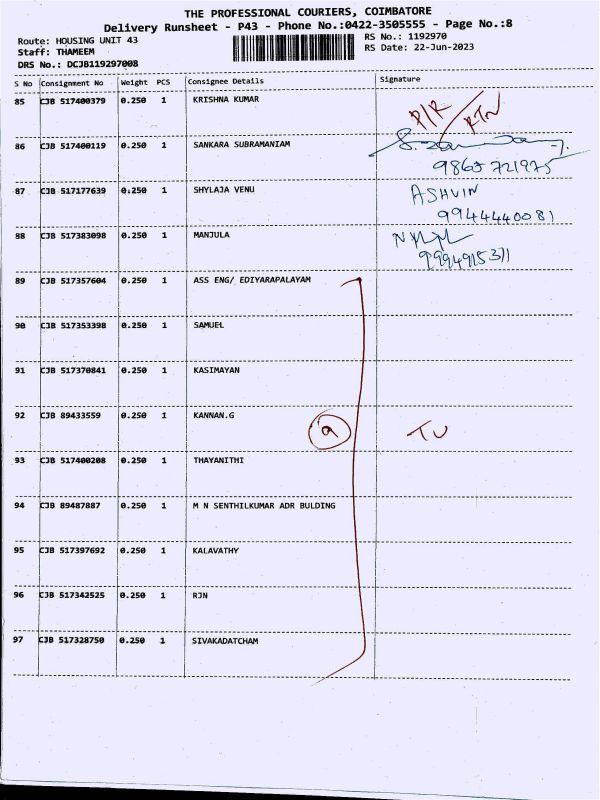 THE PROFESSIONAL COURIERS, COIMBATORE
Delivery Runsheet - P43 - Phone No.:0422-3505555 - Page No.:8
Route: HOUSING UNIT 43
RS No.: 1192970
Staff: THAMEEM
RS Date: 22-Jun-2023
DRS No.: DCJB119297008
S No Consignment No Weight PCS Consignee Details Signature
85 CJB 517400379 0.250 1 KRISHNA KUMAR P/R RTN
86 CJB 517400119 0.250 1 SANKARA SUBRAMANIAM
9865721975
87 CJB 517177639 0.250 1 SHYLAJA VENU ASHVIN
9944440081
88 CJB 517383098 0.250 1 MANJULA
9994915311
89 CJB 517357604 0.250 1 ASS ENG/ EDIYARAPALAYAM
90 CJB 517353398 0.250 1 SAMUEL
91 CJB 517370841 0.250 1 KASIMAYAN
92 CJB 89433559 0.250 1 KANNAN.G
93 CJB 517400208 0.250 1 THAYANITHI
94 CJB 89487887 0.250 1 M N SENTHILKUMAR ADR BULDING
95 CJB 517397692 0.250 1 KALAVATHY
96 CJB 517342525 0.250 1 RJN
97 CJB 517328750 0.250 1 SIVAKADATCHAM